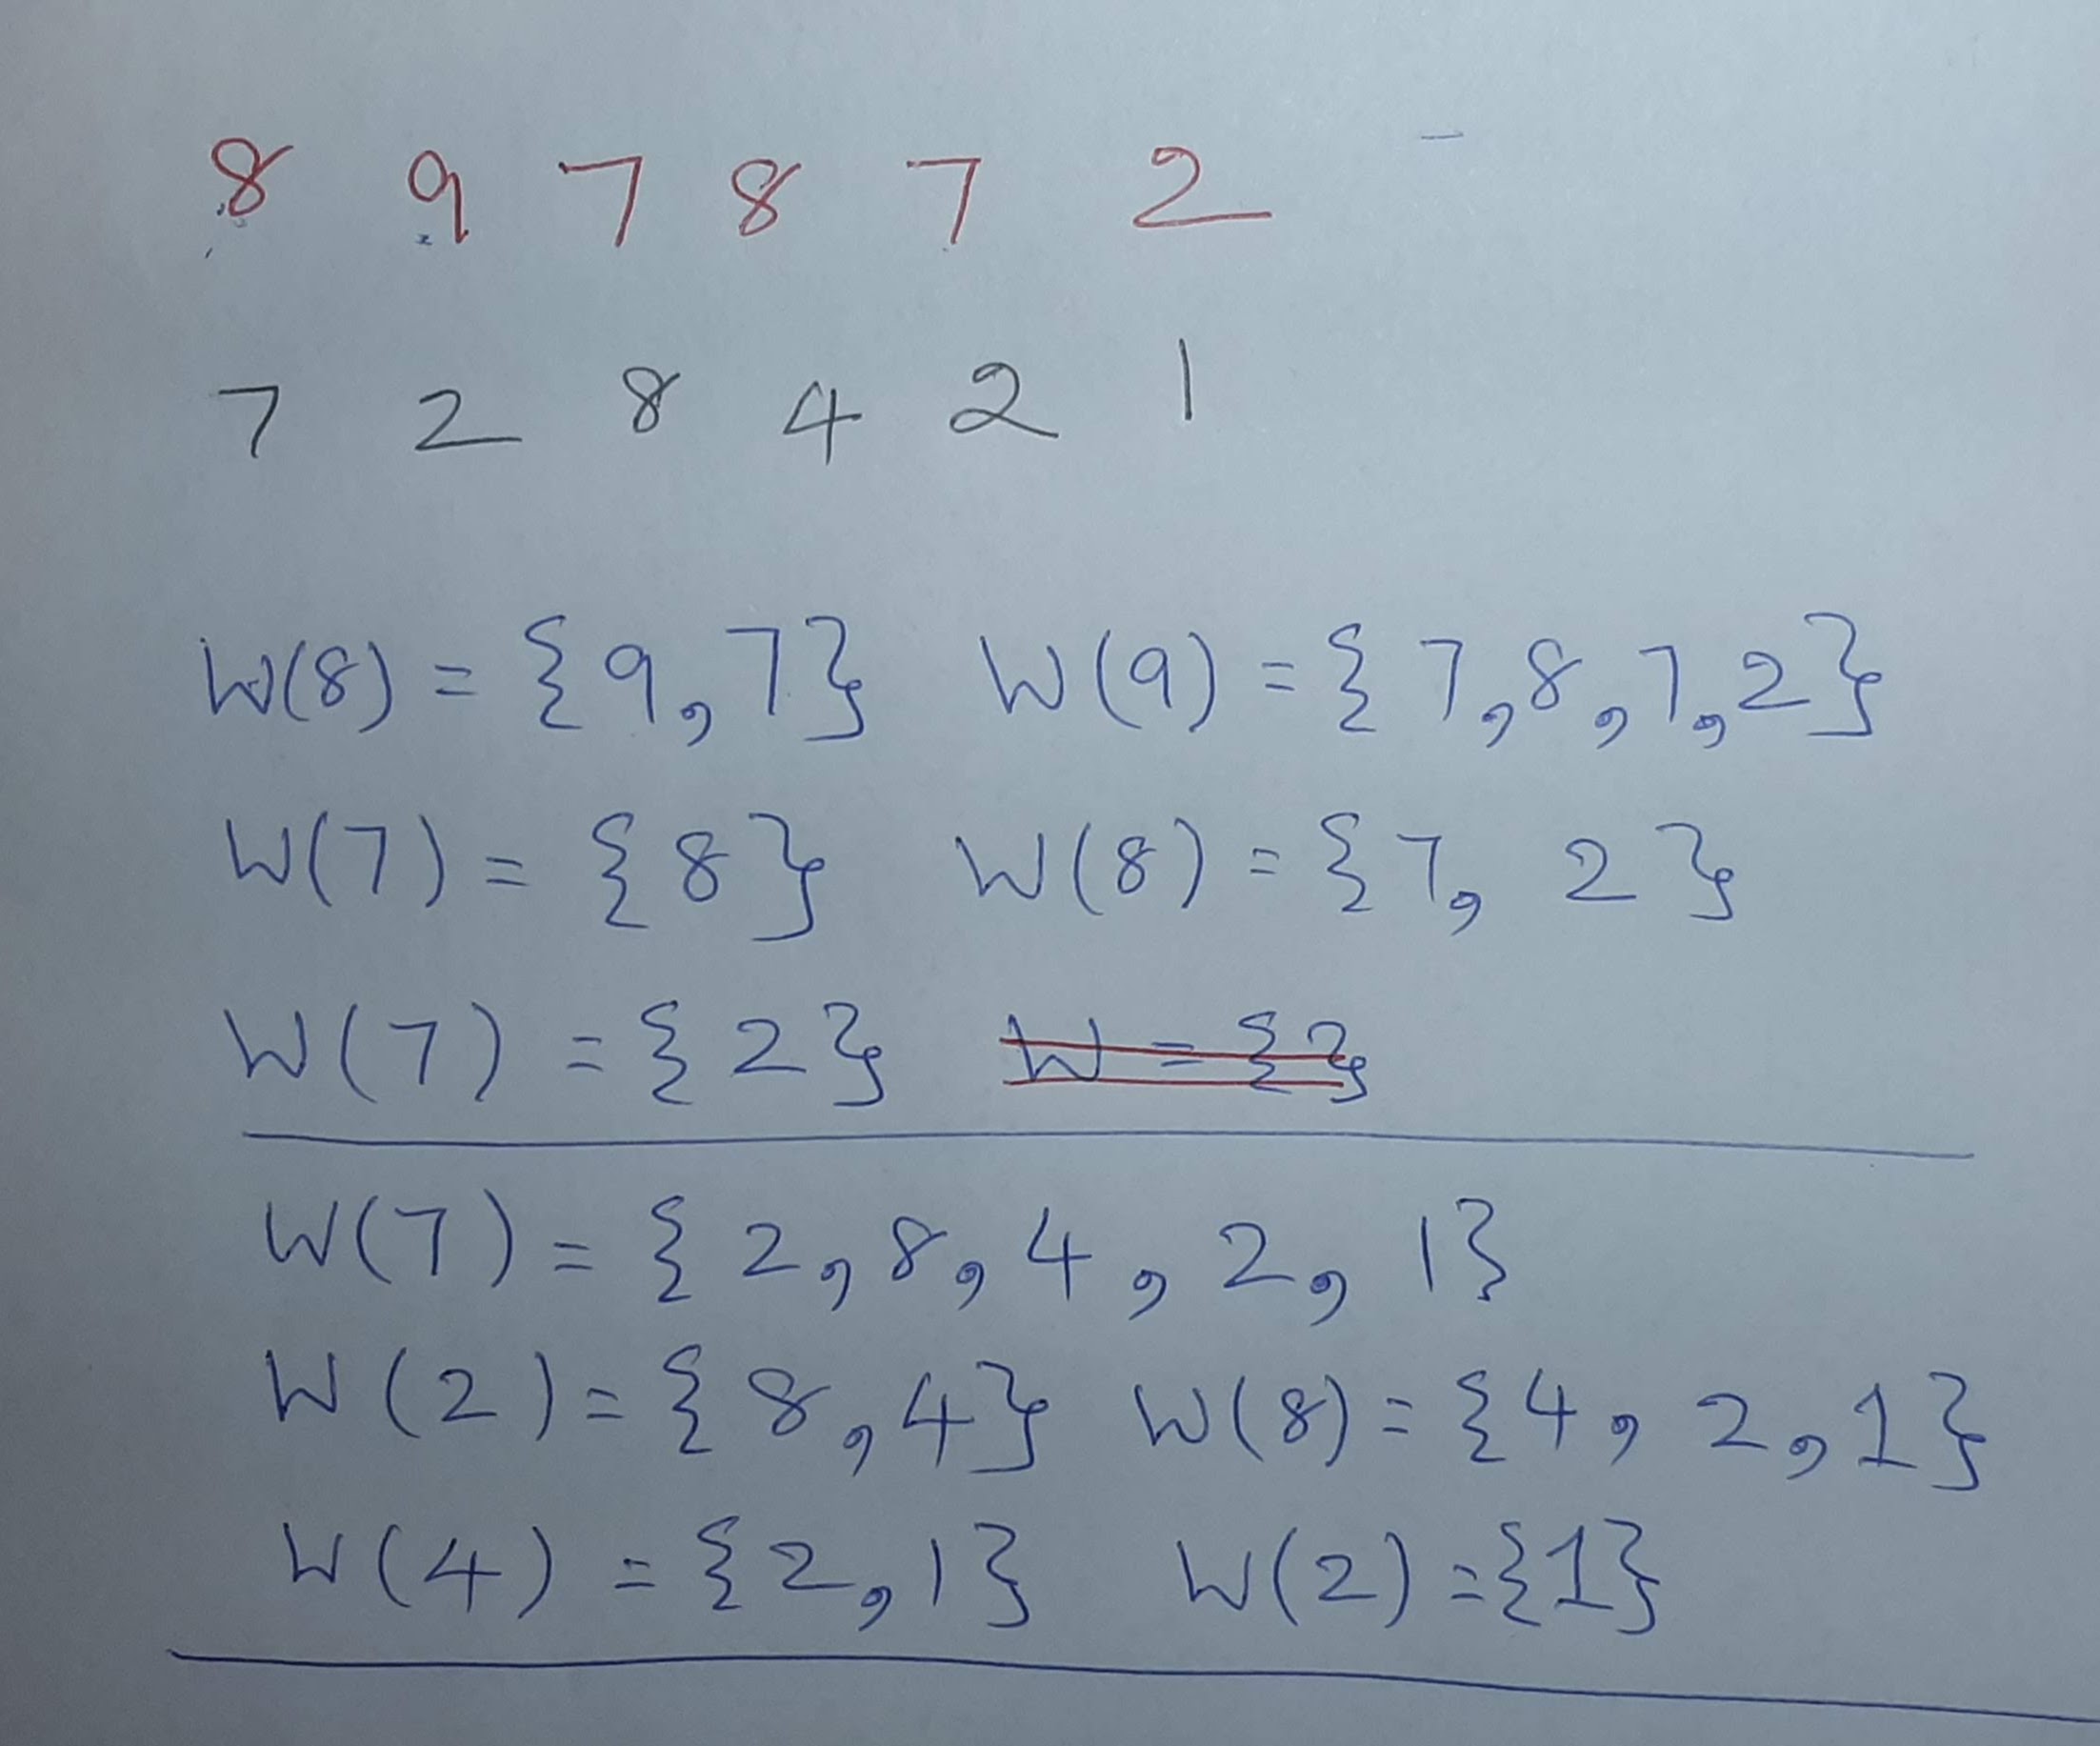 8 9 7 8 7 2
7 2 8 4 2 1
W(8) = {9,7} W(9) = {7,8,7,2}
W(7) = {8} W(8) = {7, 2}
W(7) = {2} W = {2}
W(7) = {2,8,4,2,1}
W(2) = {8,4} W(8) = {4,2,1}
W(4) = {2,1} W(2) = {1}